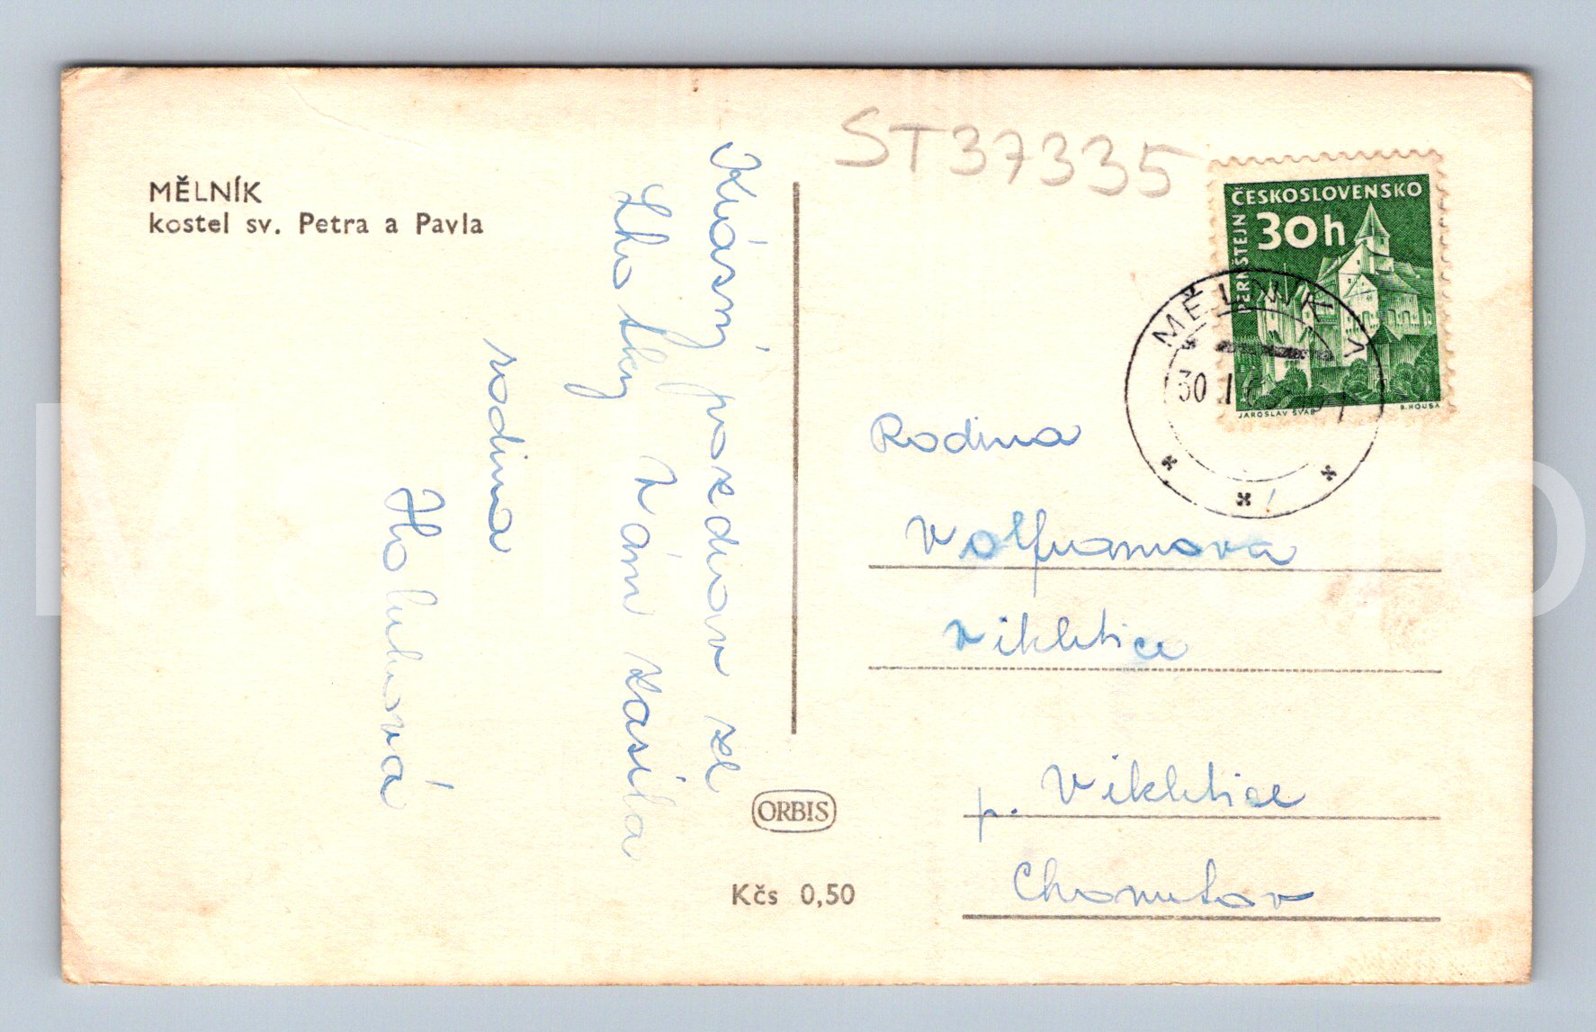 MĚLNÍK
kostel sv. Petra a Pavla
Krásný pozdrav ze
Lhotky Vám zasílá
rodina
Holubová
ORBIS
Kčs 0,50
ST37335
ČESKOSLOVENSKO
30h
PERNŠTEJN
JAROSLAV ŠVÁB
B. HOUSA
MĚLNÍK 1
30. I.
Rodina
Volframova
Vikletice
p. Vikletice
Chomutov